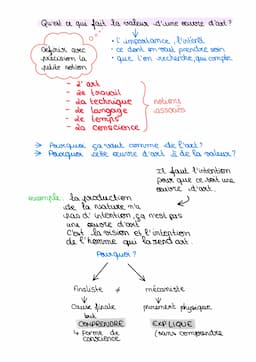 Qu'est ce qui fait la valeur d'une œuvre d'art ?
définir avec
précision la
petite notion
• l'importance, l'intérêt
• ce dont on veut prendre soin
• que l'on recherche, qui compte
- l'art
- le travail
- la technique
- le langage
- le temps
- la conscience
notions
associés
→ Pourquoi ça vaut comme de l'art ?
→ Pourquoi cette œuvre d'art à de la valeur ?
Il faut l'intention
pour que ce soit une
œuvre d'art.
exemple : la production
de la nature n'a
pas d'intention, ça n'est pas
une œuvre d'art
C'est la vision et l'intention
de l'homme qui la rend art.
Pourquoi ?
finaliste ≠ mécaniste
Cause finale
but
COMPRENDRE
↳ Forme de
conscience
purement physique
EXPLIQUE
(sans comprendre